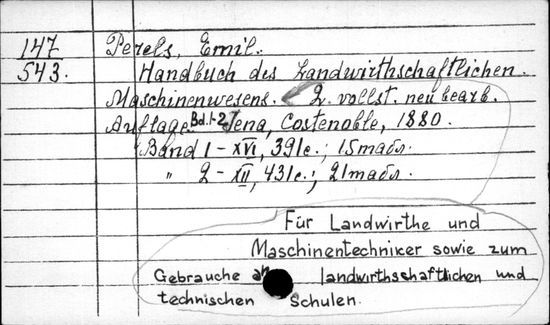 147 Perels, Emil.
543. Handbuch des Landwirthschaftlichen
Maschinenwesens. 2. vollst. neu bearb.
Auflage. Bd. 1-2. Jena, Costenoble, 1880.
Band 1 - XVI, 391с.; 15 табл.
" 2 - XII, 431с.; 21 табл.
Für Landwirthe und
Maschinentechniker sowie zum
Gebrauche an landwirthsschaftlichen und
technischen Schulen.